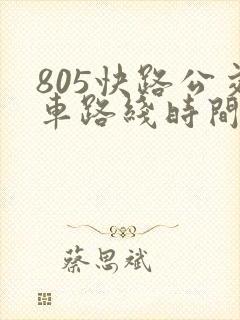 805快路公交
車路綫時間
蔡思斌